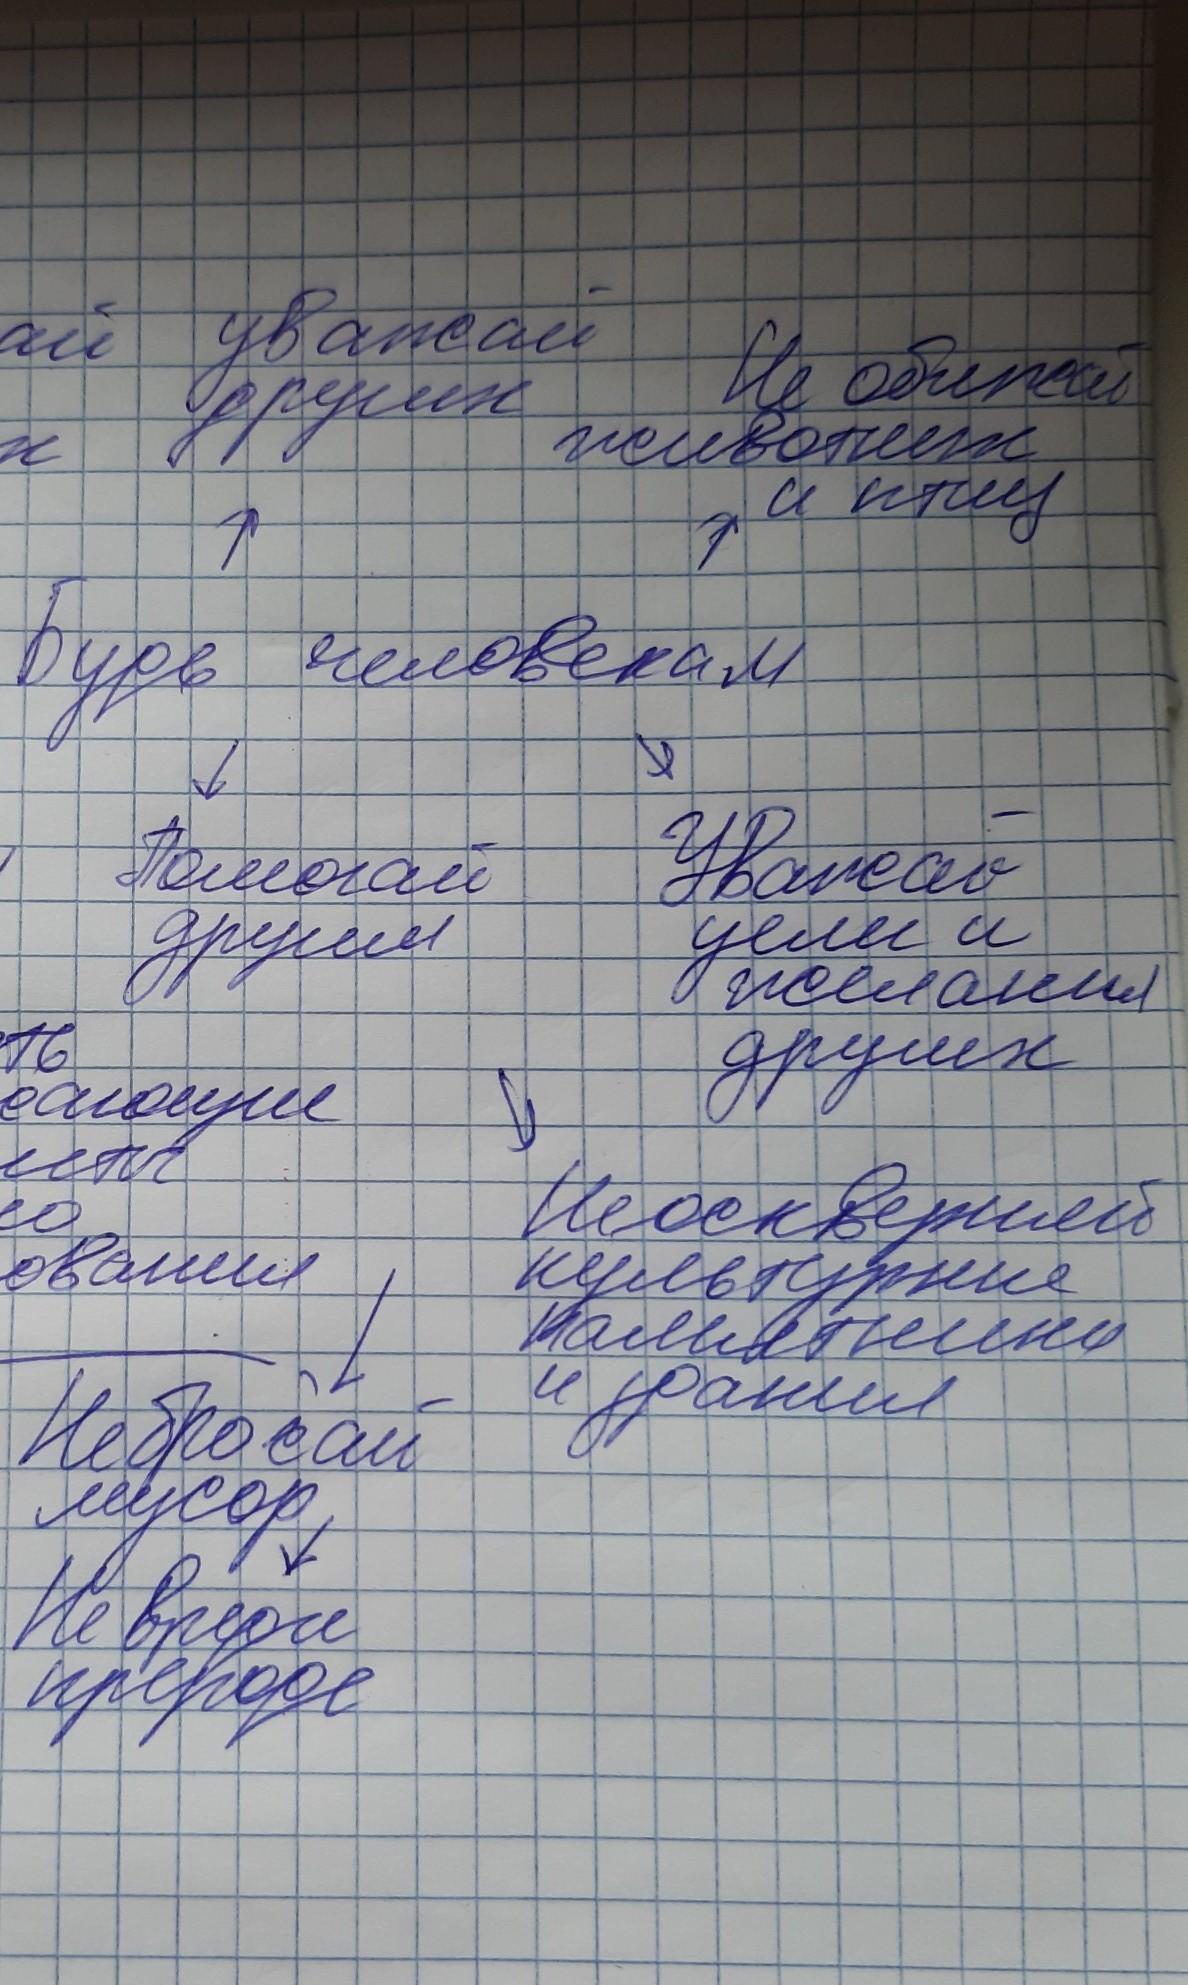 ай уважай
других
х
Не обижай
животных
и птиц
Будь человекам
Помогай
другим
Уважай
цели и
желания
других
ть
сающие
нты
но
ования
Не оскверняй
культурные
памятники
и здания
Не бросай
мусор
Не вреди
природе